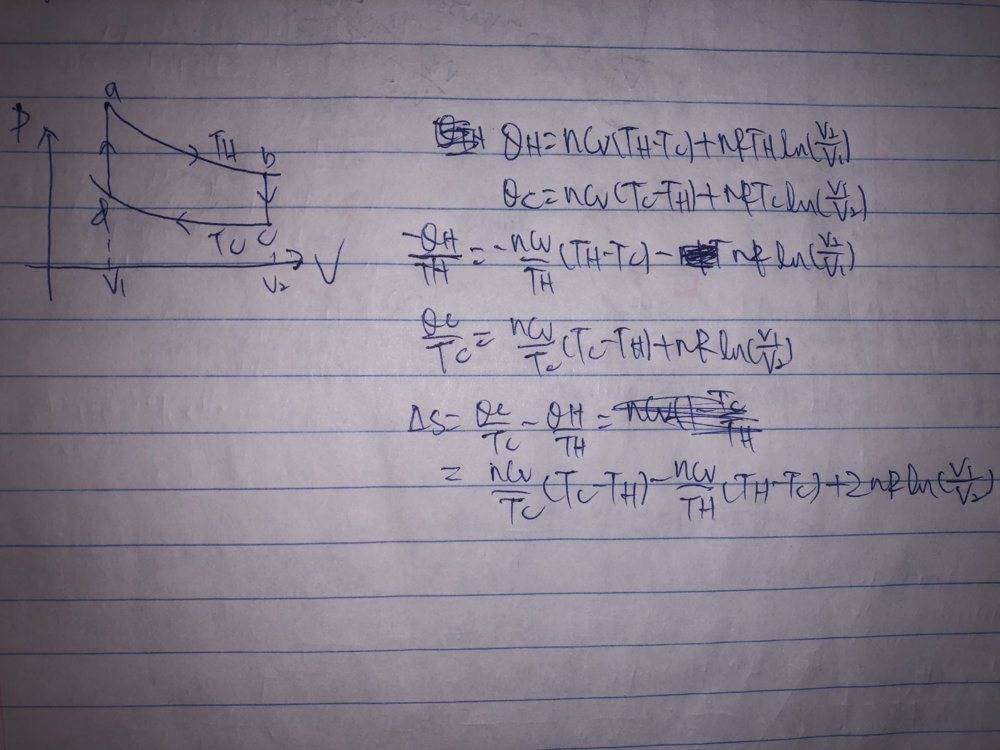 P
a
TH
b
d
TC
c
V
V1
V2
QH = nCv(TH-TC) + nRTH ln(V2/V1)
QC = nCv(TC-TH) + nRTC ln(V1/V2)
-QH/TH = -nCv/TH (TH-TC) - nR ln(V2/V1)
QC/TC = nCv/TC (TC-TH) + nR ln(V1/V2)
ΔS = QC/TC - QH/TH =
= nCv/TC (TC-TH) - nCv/TH (TH-TC) + 2nR ln(V1/V2)